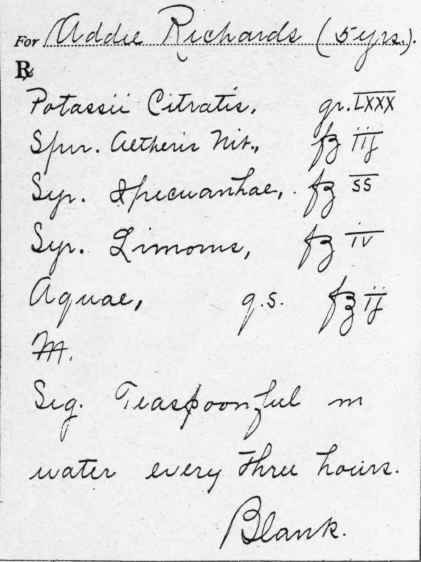 For Addie Richards (5 yrs.).
℞
Potassii Citratis, gr. LXXX
Spir. Aetheris Nit., fʒ iij
Syr. Ipecuanhae, fʒ ss
Syr. Limonis, fʒ iv
Aquae, q.s. f℥ ij
M.
Sig. Teaspoonful in
water every three hours.
Blank.